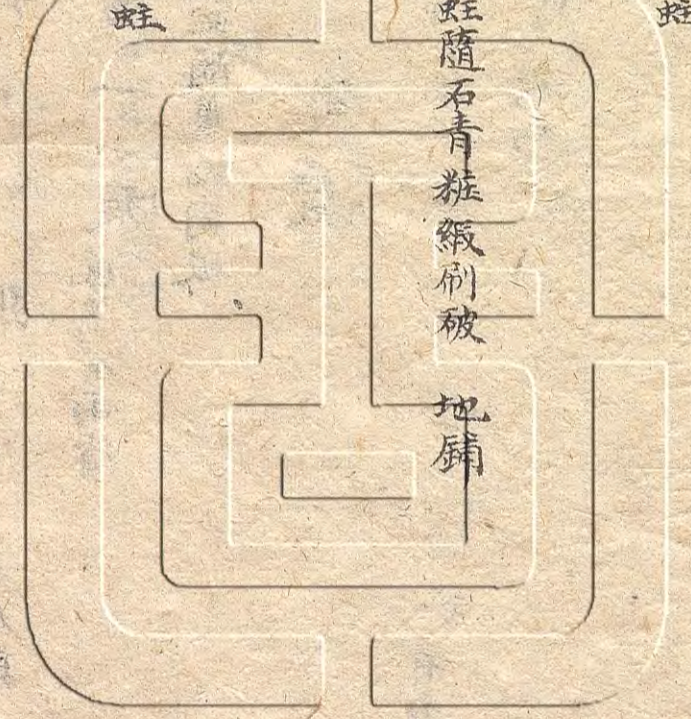 蛀
蛀隨石青粧緞刷破 地鋪
蛀